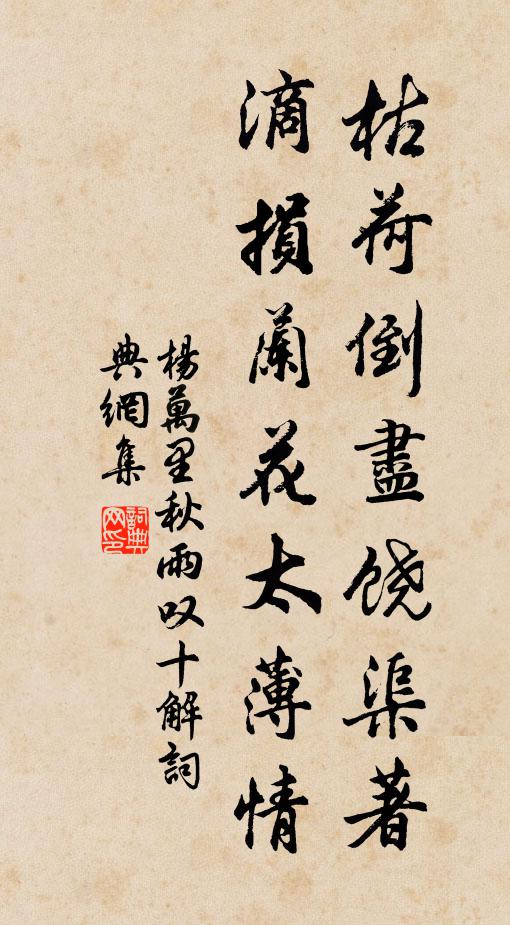 枯荷倒盡饶渠著
滴損蘭花太薄情
楊萬里秋雨叹十解詞
典網集
詞典网印